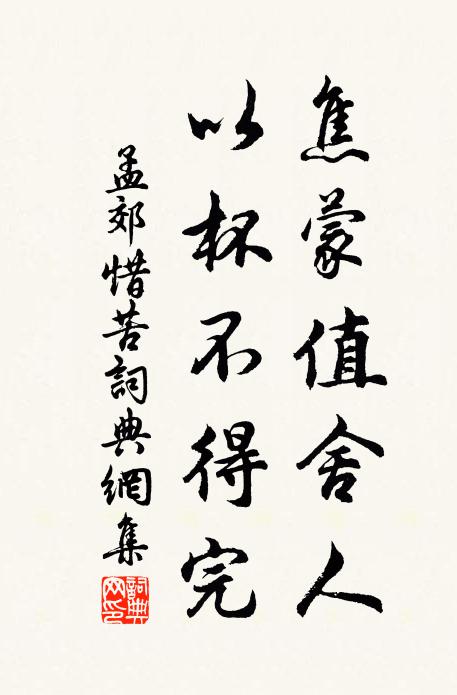 焦蒙值舍人
以杯不得完
孟郊惜苦詞典網集
詞典
网印